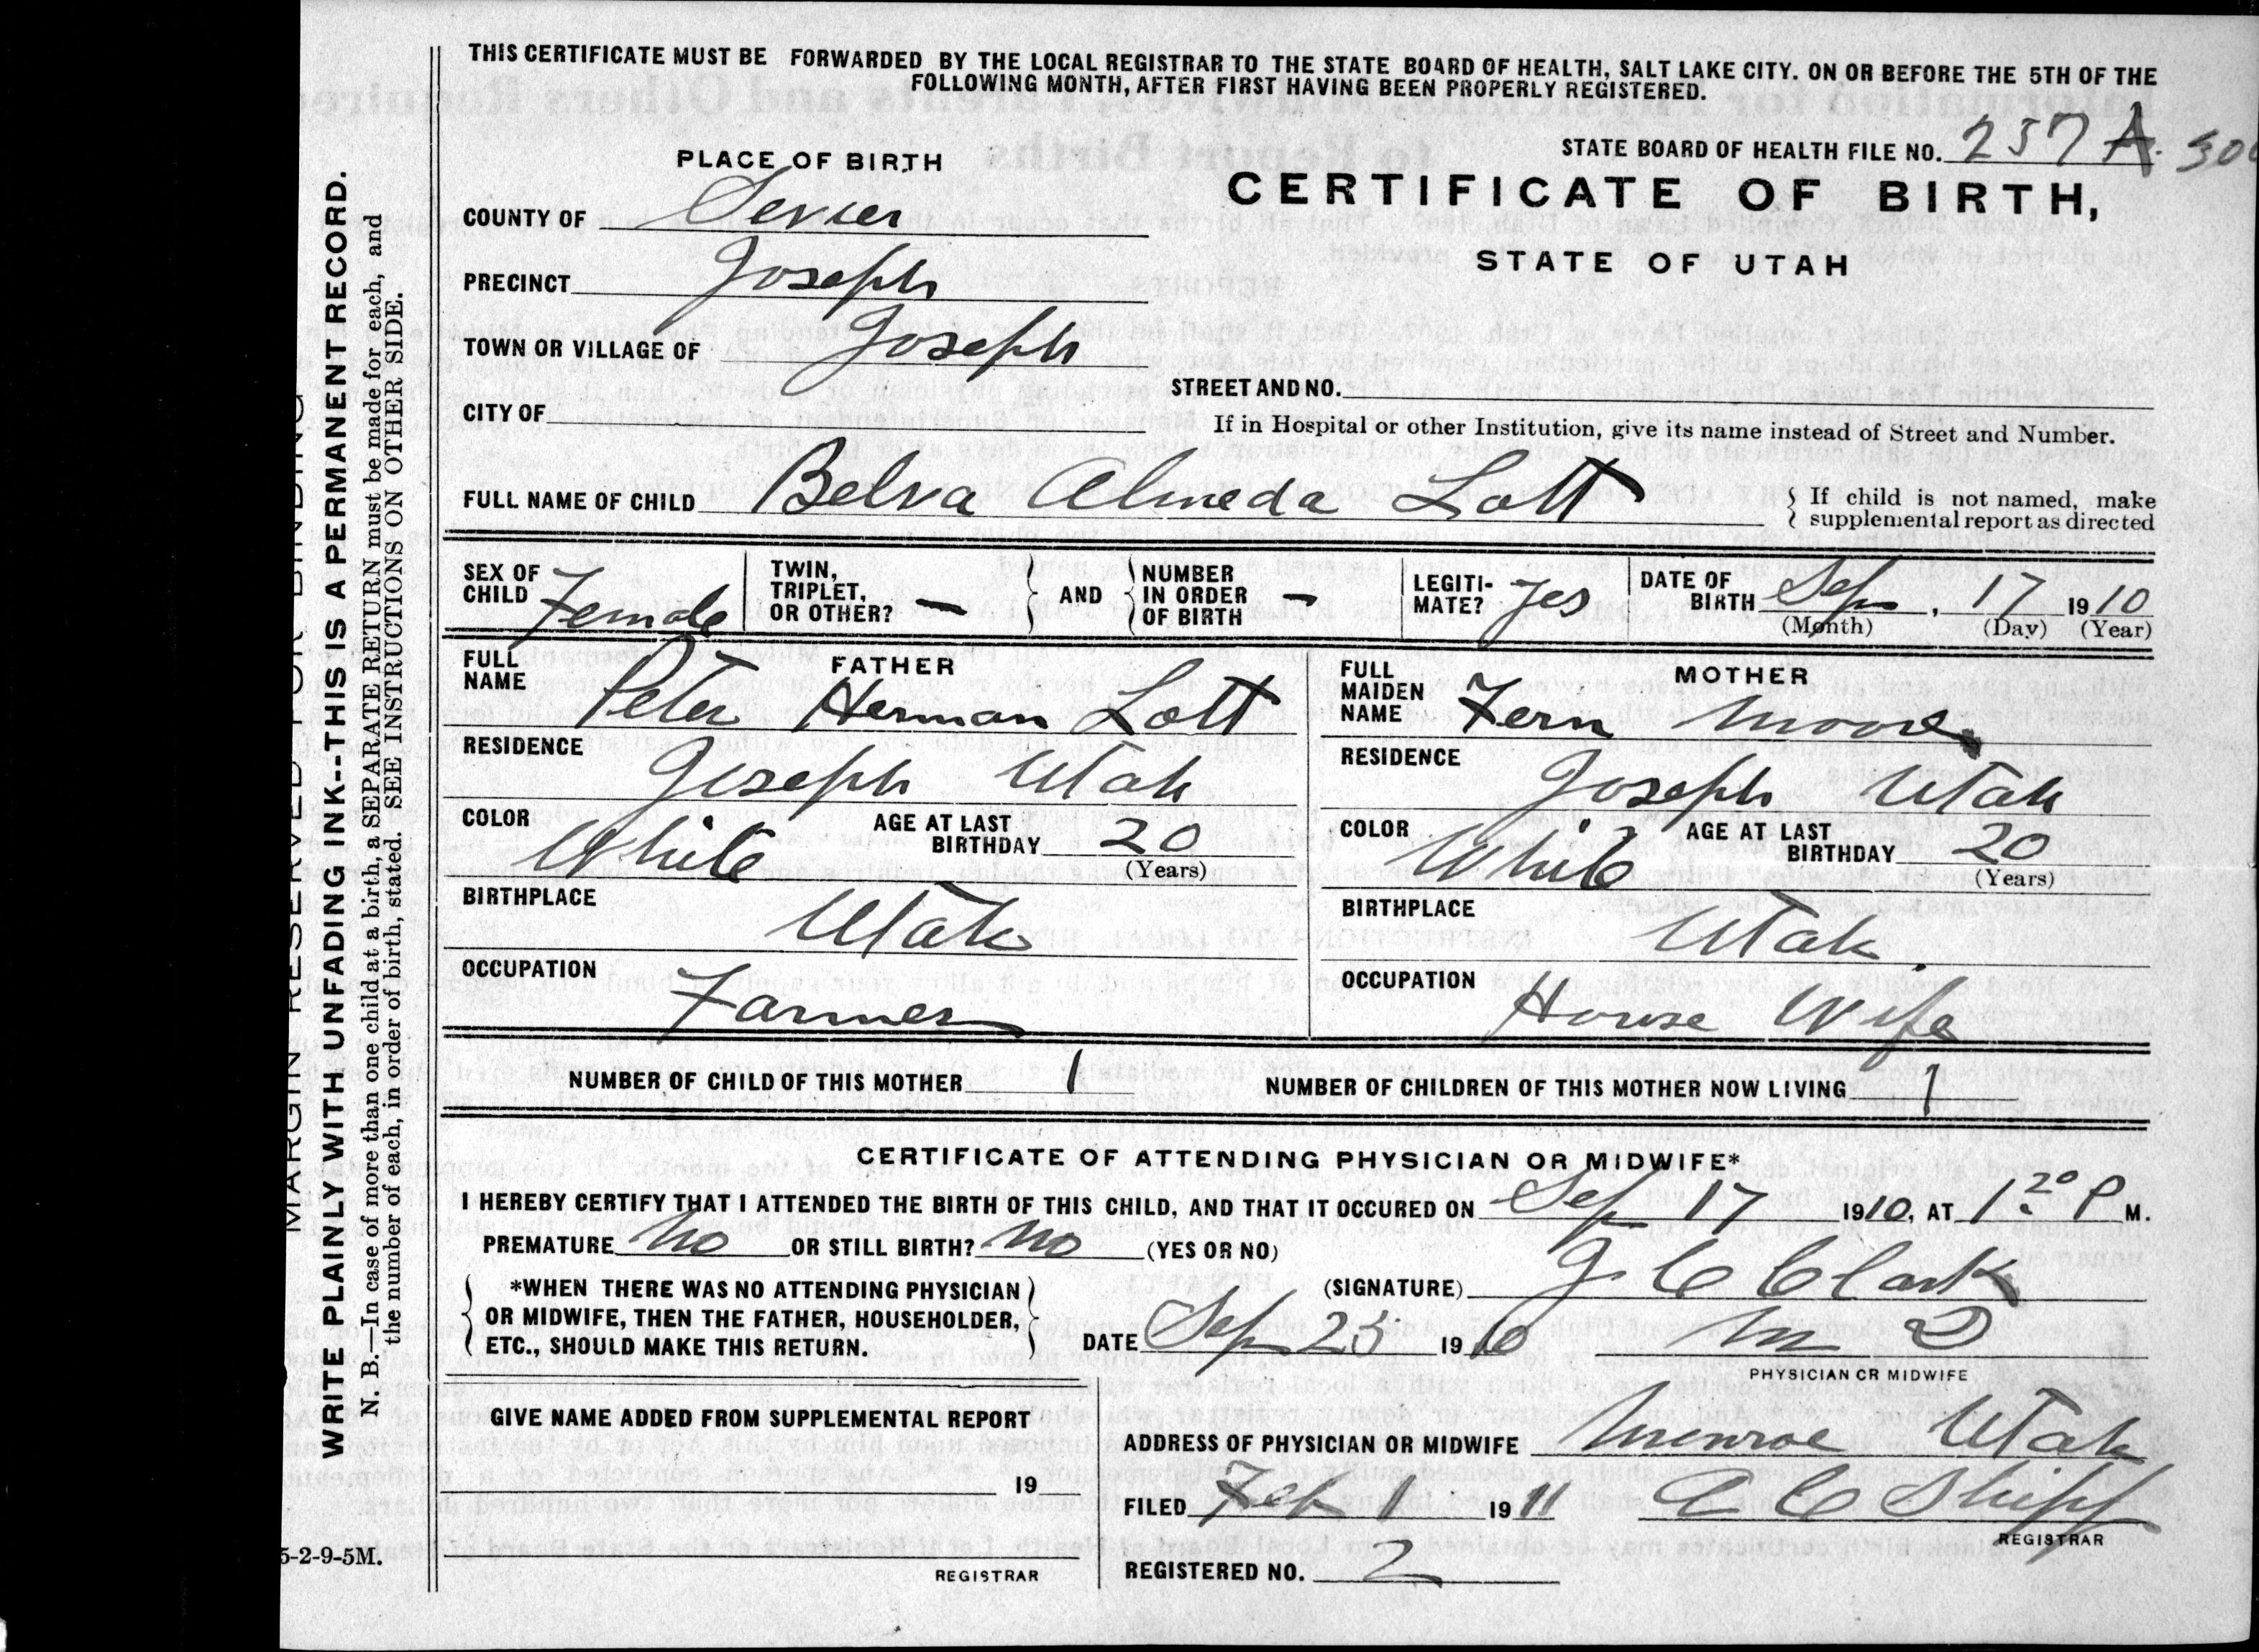 THIS CERTIFICATE MUST BE FORWARDED BY THE LOCAL REGISTRAR TO THE STATE BOARD OF HEALTH, SALT LAKE CITY. ON OR BEFORE THE 5TH OF THE
FOLLOWING MONTH, AFTER FIRST HAVING BEEN PROPERLY REGISTERED.
STATE BOARD OF HEALTH FILE NO. 237 A. 300
PLACE OF BIRTH
CERTIFICATE OF BIRTH,
STATE OF UTAH
COUNTY OF Sevier
PRECINCT Joseph
TOWN OR VILLAGE OF Joseph
STREET AND NO.
CITY OF
If in Hospital or other Institution, give its name instead of Street and Number.
FULL NAME OF CHILD Belva Almeda Lott
If child is not named, make
supplemental report as directed
SEX OF CHILD Female
TWIN, TRIPLET, OR OTHER? —
AND
NUMBER IN ORDER OF BIRTH —
LEGITI-MATE? Yes
DATE OF BIRTH Sep, 17 1910
(Month) (Day) (Year)
FATHER
FULL NAME Peter Herman Lott
RESIDENCE Joseph Utah
COLOR White
AGE AT LAST BIRTHDAY 20
(Years)
BIRTHPLACE Utah
OCCUPATION Farmer
MOTHER
FULL MAIDEN NAME Fern Moore
RESIDENCE Joseph Utah
COLOR White
AGE AT LAST BIRTHDAY 20
(Years)
BIRTHPLACE Utah
OCCUPATION House Wife
NUMBER OF CHILD OF THIS MOTHER 1
NUMBER OF CHILDREN OF THIS MOTHER NOW LIVING 1
CERTIFICATE OF ATTENDING PHYSICIAN OR MIDWIFE*
I HEREBY CERTIFY THAT I ATTENDED THE BIRTH OF THIS CHILD, AND THAT IT OCCURED ON Sep 17 1910, AT 1.20 P M.
PREMATURE No OR STILL BIRTH? No (YES OR NO)
*WHEN THERE WAS NO ATTENDING PHYSICIAN
OR MIDWIFE, THEN THE FATHER, HOUSEHOLDER,
ETC., SHOULD MAKE THIS RETURN.
(SIGNATURE) J. C Clark
DATE Sep 25 1910
M D
PHYSICIAN OR MIDWIFE
GIVE NAME ADDED FROM SUPPLEMENTAL REPORT
19
REGISTRAR
ADDRESS OF PHYSICIAN OR MIDWIFE Monroe Utah
FILED Feb 1 1911
C C Shipp
REGISTRAR
REGISTERED NO. 2
5-2-9-5M.
MARGIN RESERVED FOR BINDING
WRITE PLAINLY WITH UNFADING INK--THIS IS A PERMANENT RECORD.
N. B.—In case of more than one child at a birth, a SEPARATE RETURN must be made for each, and
the number of each, in order of birth, stated. SEE INSTRUCTIONS ON OTHER SIDE.